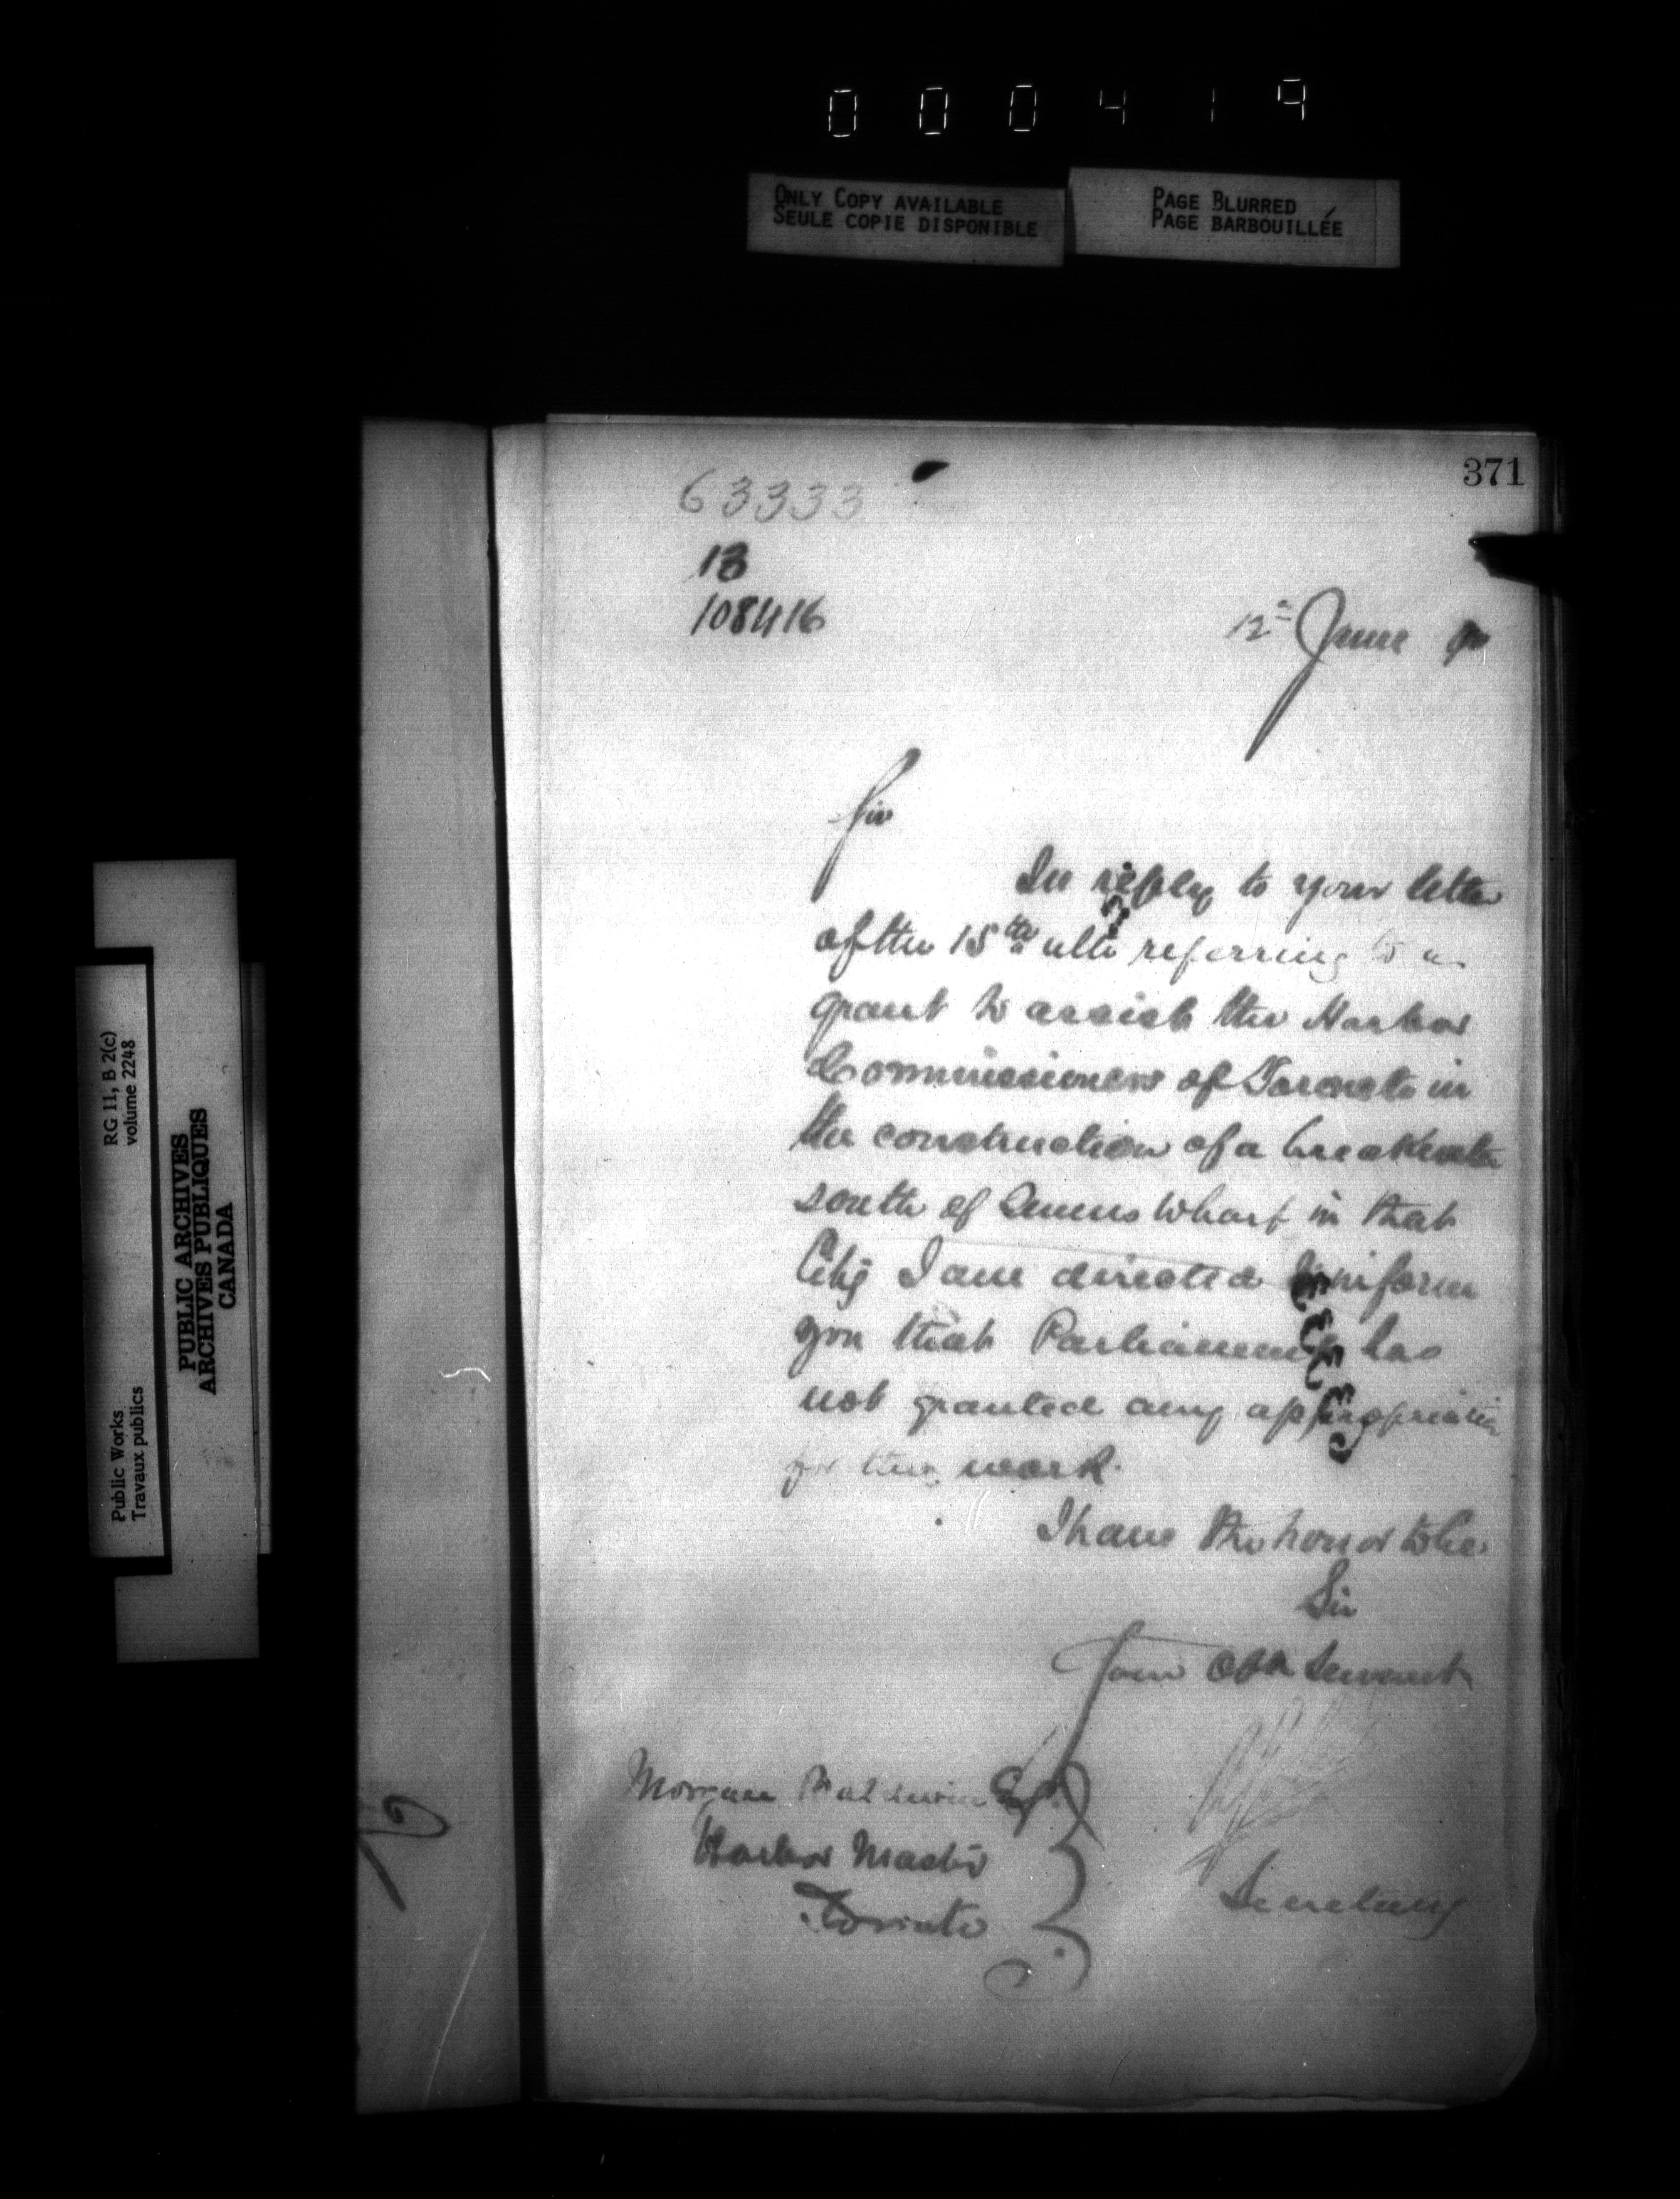 000419
ONLY COPY AVAILABLE
SEULE COPIE DISPONIBLE
PAGE BLURRED
PAGE BARBOUILLÉE
371
63333
13
108416
12th June 90
Sir
In reply to your letter
of the 15th ulto referring to a
grant to assist the Harbor
Commissioners of Toronto in
the construction of a breakwater
south of Queens Wharf in that
City I am directed to inform
you that Parliament has
not granted any appropriation
for this work.
I have the honor to be
Sir
Your Obt Servant
Secretary
Morgan Baldwin Esq.
Harbor Master
Toronto
Public Works
Travaux publics
RG 11, B 2(c)
volume 2248
PUBLIC ARCHIVES
ARCHIVES PUBLIQUES
CANADA